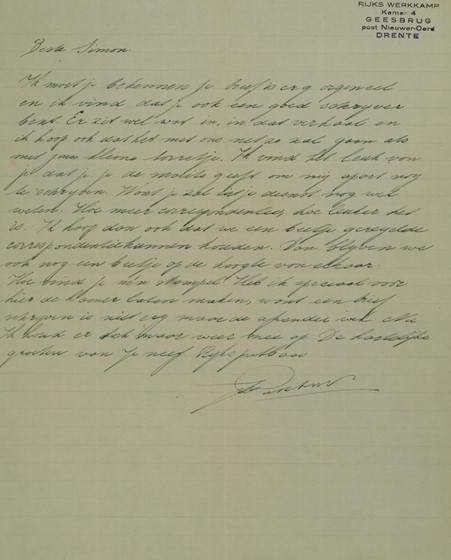 RIJKS WERKKAMP
Kamer 4
GEESBRUG
post Nieuwer-Oord
DRENTE
Beste Simon
Ik moet je bekennen je brief is erg orgineel
en ik vind dat je ook een goed schrijver
bent. Er zit wel wat in, in dat verhaal en
ik hoop ook dat het met ons net zo zal gaan als
met jouw kleine torretje. Ik vond het leuk van
je dat je je de moeite geeft om mij apart nog
te schrijven. Want je zal dat je dienst nog wel
weten. Hoe meer correspondentie, hoe leuker het
is. Ik hoop dan ook dat we een beetje geregelde
correspondentie kunnen houden. Dan blijven we
ook nog een beetje op de hoogte van elkaar.
Hoe vind je m'n stempel. Heb ik speciaal voor
hier de kamer laten maken, want een brief
schrijven is niet erg maar de afzender wel. Nu
Ik houd er toch maar weer mee op De hartelijke
groeten van je neef